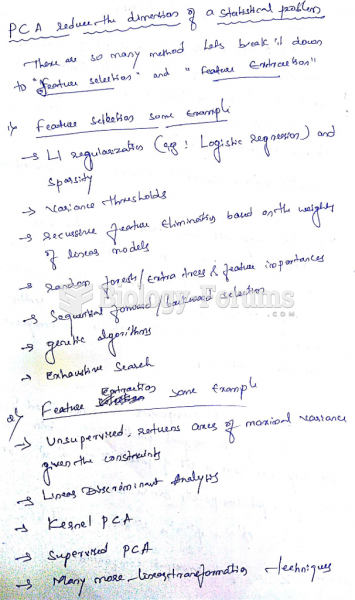 PCA reduce the dimension of a statistical problem
There are so many method lets break it down
to "feature selection" and "Feature Extraction"
1) Feature selection some Example
→ L1 regularization (eg: Logistic regression) and
sparsity
→ variance thresholds
→ recursive feature Elimination based on the weights
of linear models
→ random forests / Extra trees & feature importances
→ sequential forward / backward selection
→ genetic algorithms
→ Exhaustive Search
Biology-Forums
.COM
2) Feature Extraction some Example
→ Unsupervised, returns axes of maximal variance
given the constraints
→ Linear Discriminant Analysis
→ Kernel PCA
→ Supervised PCA
→ Many more linear transformation techniques